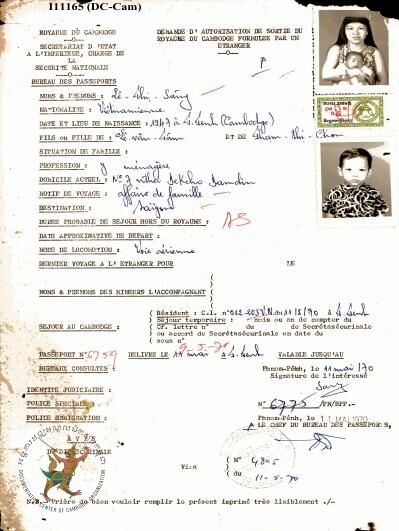 I11165 (DC-Cam)
ROYAUME DU CAMBODGE
SECRETARIAT D'ETAT
A L'INTERIEUR, CHARGE DE
LA
SECURITE NATIONALE
BUREAU DES PASSEPORTS
DEMANDE D'AUTORISATION DE SORTIE DU
ROYAUME DU CAMBODGE FORMULEE PAR UN
ETRANGER
NOMS & PRENOMS : Lê-Thi-Sang
NATIONALITE : Vietnamienne
DATE ET LIEU DE NAISSANCE : 1947 à (Cambodge)
FILS ou FILLE DE : Lê van ET DE Pham-Thi-
SITUATION DE FAMILLE :
PROFESSION : ménagère
DOMICILE ACTUEL : Nº 7 vithei Dekcho Damdin
MOTIF DE VOYAGE : affaire de famille
DESTINATION : Saigon
DUREE PROBABLE DE SEJOUR HORS DU ROYAUME : AS
DATE APPROXIMATIVE DE DEPART :
MODE DE LOCOMOTION : Voie aérienne
DERNIER VOYAGE A L'ETRANGER POUR LE
NOMS & PRENOMS DES MINEURS L'ACCOMPAGNANT
SEJOUR AU CAMBODGE :
Résident : C.I. nº du 11/5/70 à
Séjour temporaire : mois ou an de compter du
Cf. lettre nº du de Secrétasécurinale
ou accord de Secrétasécurinale en date du
sous nº
9-5-70
PASSEPORT Nº 6759 DELIVRE LE 11 mai à VALABLE JUSQU'AU
BUREAUX CONSULTES :
Phnom-Pénh, le 11 mai 70
Signature de l'intéressé
Sang
IDENTITE JUDICIAIRE :
POLICE SPECIALE :
Nº 6775 /PN/BPP.-
POLICE IMMIGRATION :
Phnom-Pénh, le 11 MAI 1970
LE CHEF DU BUREAU DES PASSEPORTS,
AVIS
Visa
Nº 4805
du 11-5-70
DOCUMENTATION CENTER OF CAMBODIA ORGANIZATION
N.B.- Prière de bien vouloir remplir le présent imprimé très lisiblement ./-